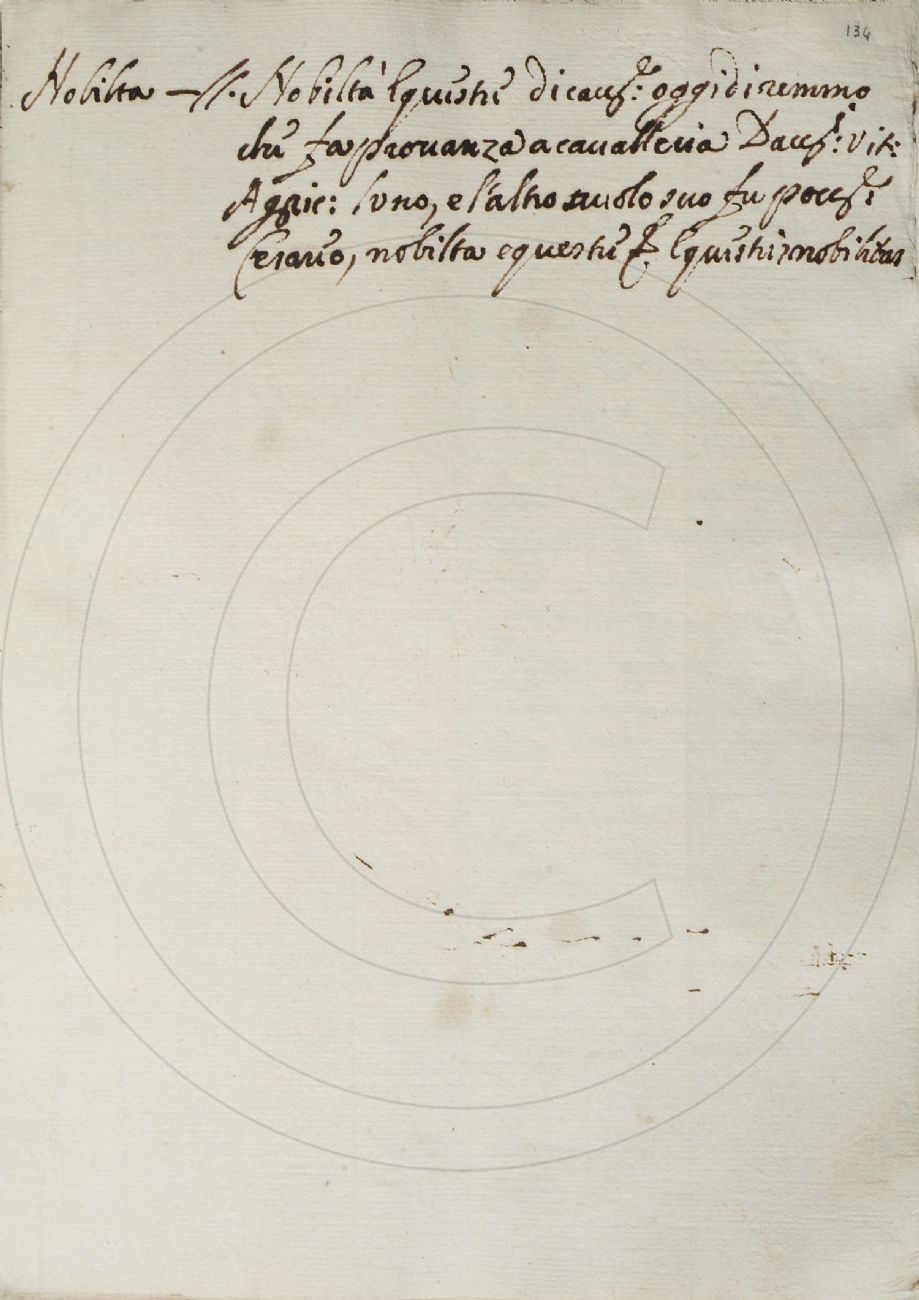 134
Nobilta — //. Nobiltà Equestre dicaụs: oggi diremmo
che fa prouanza a caualleria Dau: vit:
Agric: l'uno, e l'altro auolo suo fu
Cesareo, nobilta equestre Equestris nobilitas